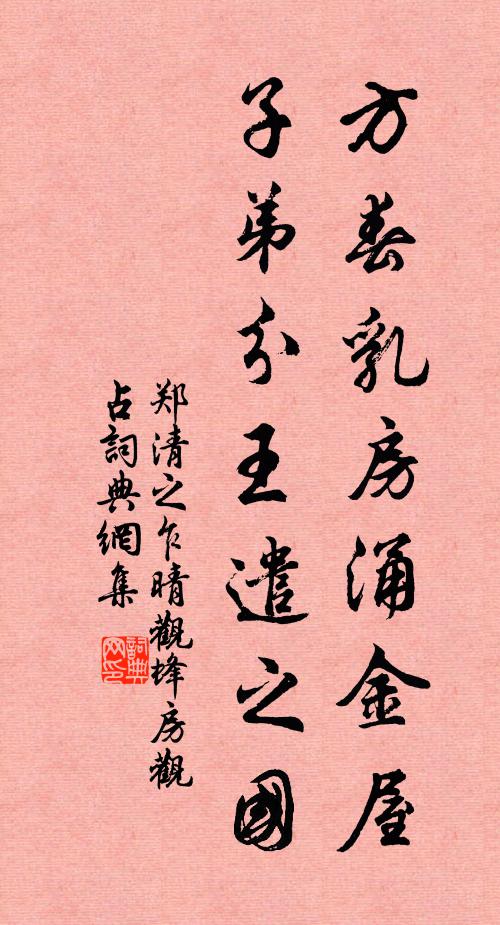 方春乳房涌金屋
子弟分王遣之國
郑清之乍晴觀蜂房觀
占詞典網集
詞典网印